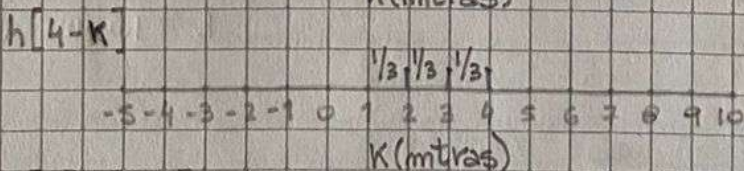 h[4-K]
1/3 1/3 1/3
-5 -4 -3 -2 -1 0 1 2 3 4 5 6 7 8 9 10
K(mtras)